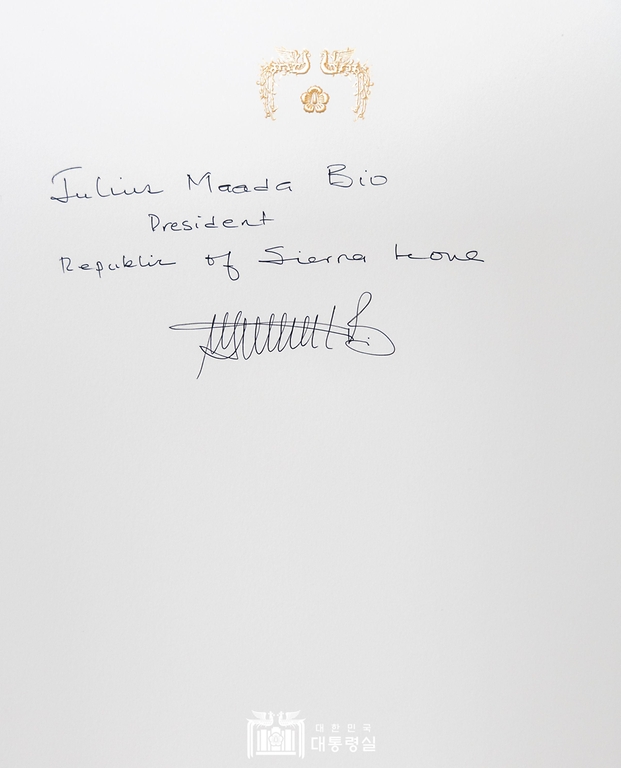 Julius Maada Bio
President
Republic of Sierra Leone
대한민국
대통령실